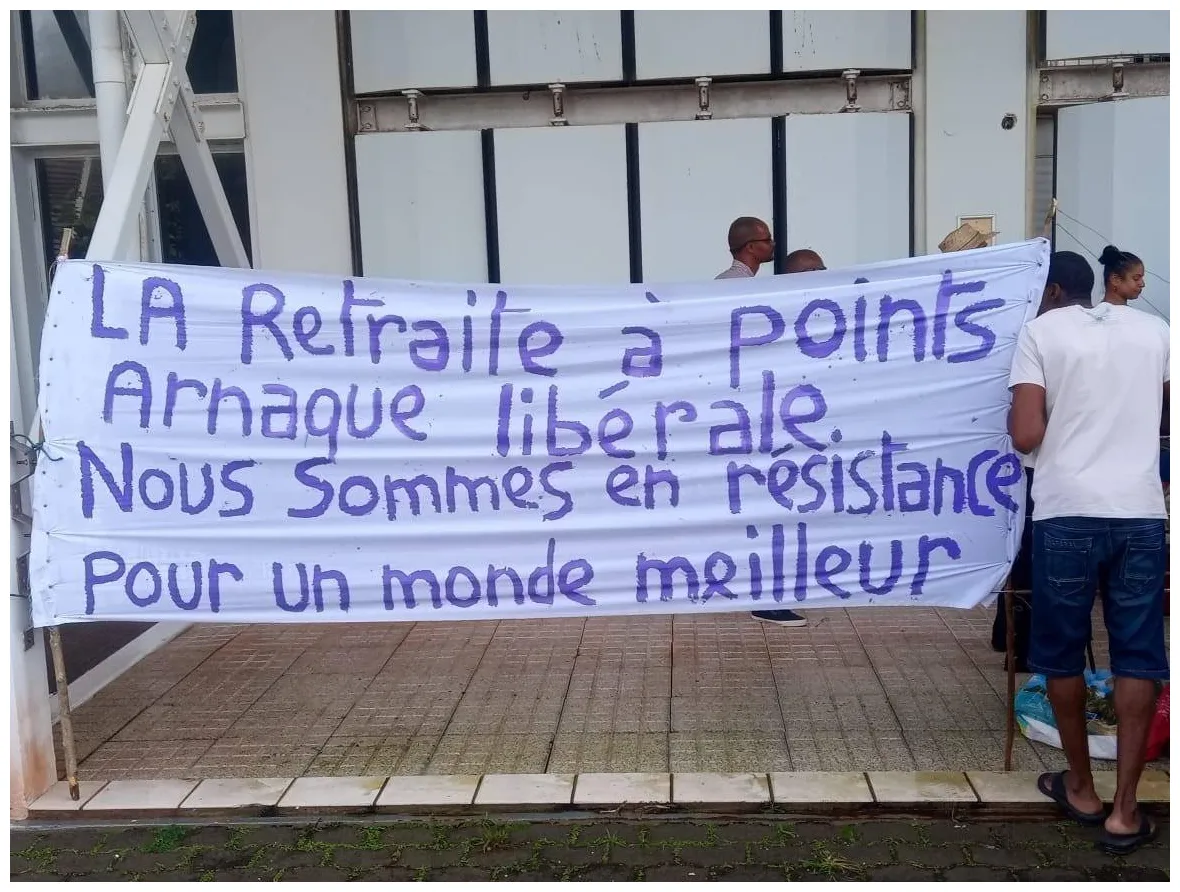 LA Retraite à points
Arnaque libérale
Nous Sommes en résistance
Pour un monde meilleur